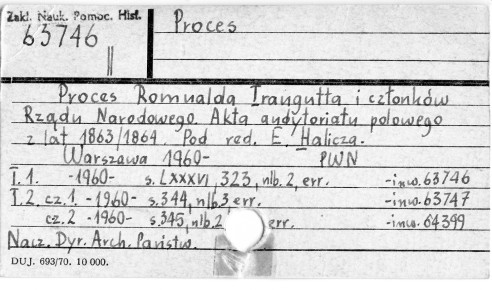 Zakł. Nauk. Pomoc. Hist.
63746
Proces
Proces Romualda Traugutta i członków
Rządu Narodowego. Akta audytoriatu polowego
z lat 1863/1864. Pod red. E. Halicza.
Warszawa 1960- PWN
T.1. -1960- s. LXXXVI, 323, nlb. 2, err. -inw. 63746
T.2. cz.1 -1960- s. 344, nlb. 3 err. -inw. 63747
cz.2 -1960- s. 345, nlb. 2 err. -inw. 64399
Nacz. Dyr. Arch. Państw.
DUJ. 693/70. 10 000.